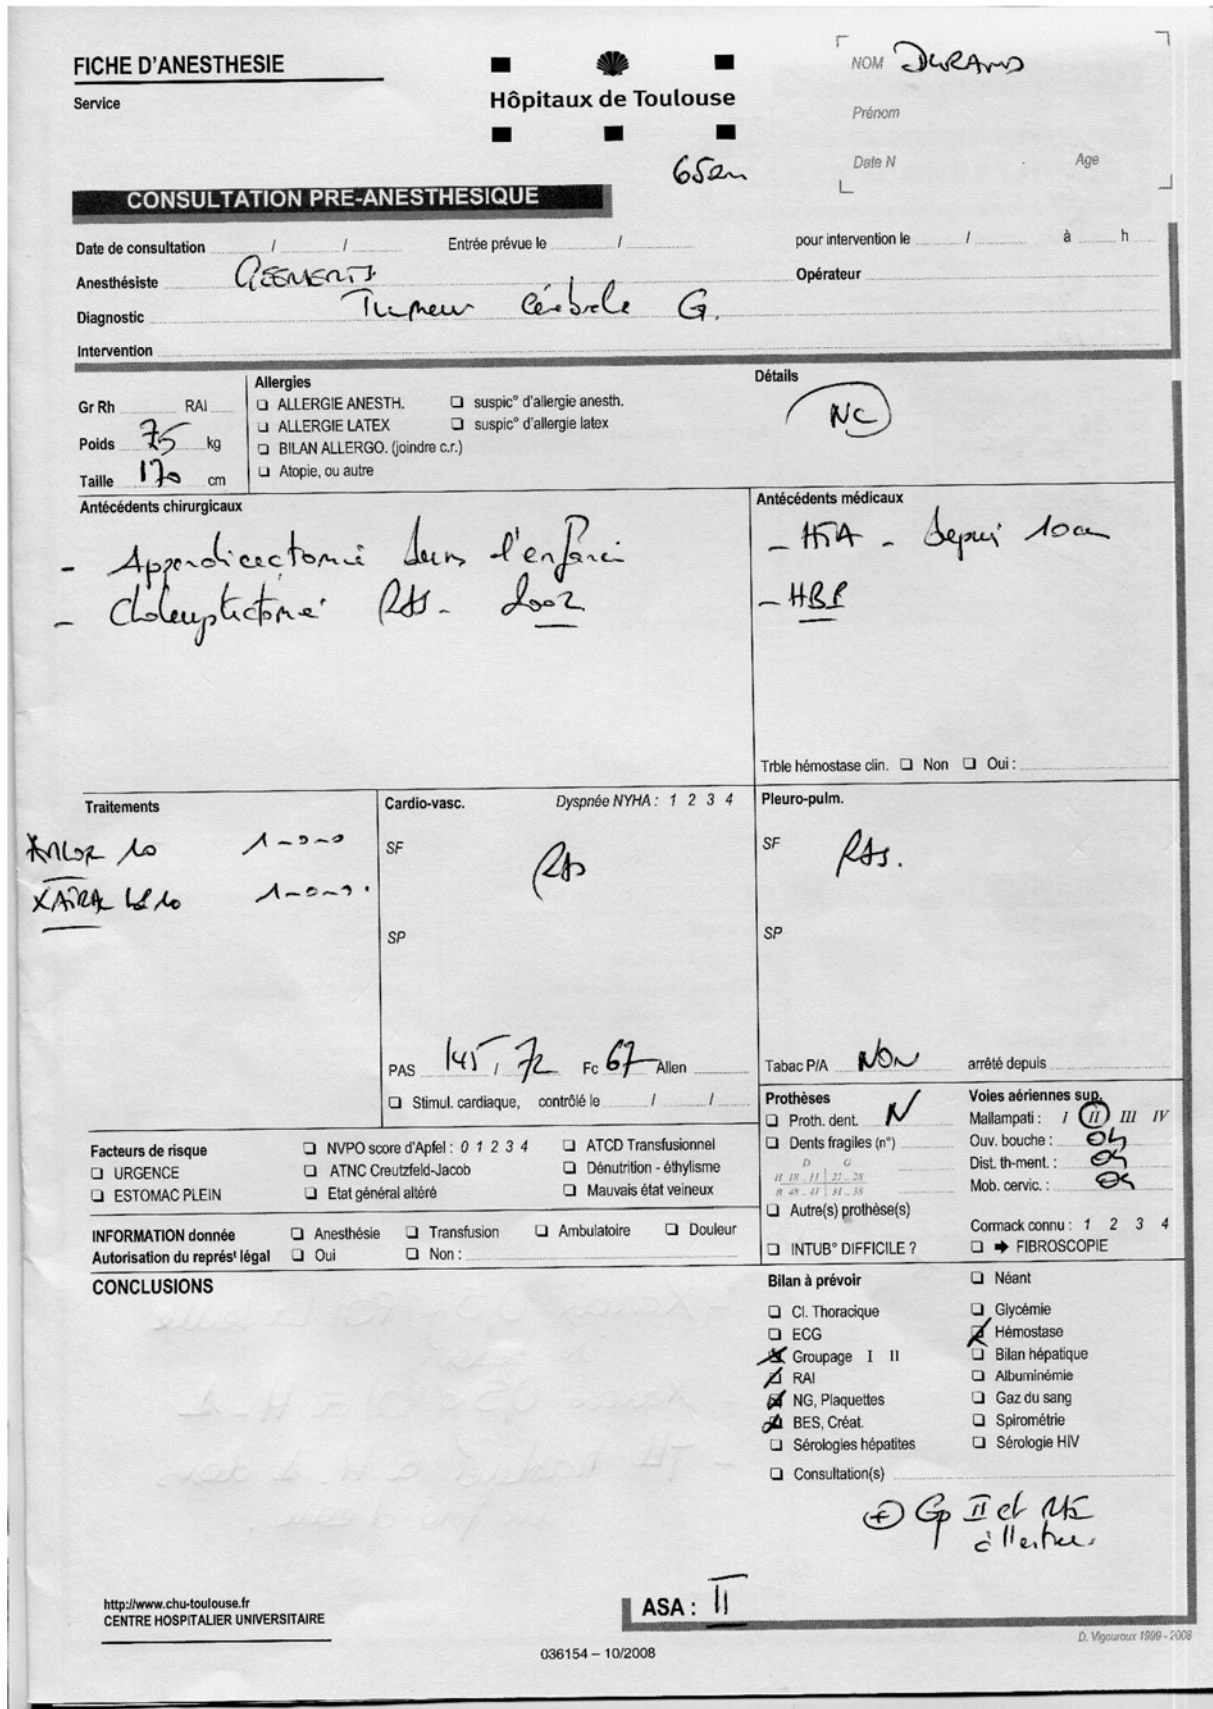 FICHE D'ANESTHESIE
Service
Hôpitaux de Toulouse
NOM DURAND
Prénom
Date N Age
65 an
CONSULTATION PRE-ANESTHESIQUE
Date de consultation / / Entrée prévue le / pour intervention le / à h
Anesthésiste Opérateur
Diagnostic Tumeur cérébrale G.
Intervention
Gr Rh RAI
Poids 75 kg
Taille 170 cm
Allergies
ALLERGIE ANESTH. suspic° d'allergie anesth.
ALLERGIE LATEX suspic° d'allergie latex
BILAN ALLERGO. (joindre c.r.)
Atopie, ou autre
Détails
NC
Antécédents chirurgicaux
- Appendicectomie dans l'enfance
- RAS - 2002
Antécédents médicaux
- HTA - depuis 10 an
- HBP
Trble hémostase clin. Non Oui :
Traitements
10 1-0-0
XATRAL LP 10 1-0-0.
Cardio-vasc. Dyspnée NYHA : 1 2 3 4
SF RAS
SP
PAS 145 / 72 Fc 67 Allen
Stimul. cardiaque, contrôlé le / /
Pleuro-pulm.
SF RAS.
SP
Tabac P/A NON arrêté depuis
Prothèses
Proth. dent. N
Dents fragiles (n°)
D G
H 18 .. 11 21 .. 28
B 48 .. 41 31 .. 38
Autre(s) prothèse(s)
INTUB° DIFFICILE ?
Voies aériennes sup.
Mallampati : I II III IV
Ouv. bouche :
Dist. th-ment. :
Mob. cervic. :
Cormack connu : 1 2 3 4
➜ FIBROSCOPIE
Facteurs de risque
URGENCE
ESTOMAC PLEIN
NVPO score d'Apfel : 0 1 2 3 4
ATNC Creutzfeld-Jacob
Etat général altéré
ATCD Transfusionnel
Dénutrition - éthylisme
Mauvais état veineux
INFORMATION donnée Anesthésie Transfusion Ambulatoire Douleur
Autorisation du représᵗ légal Oui Non :
CONCLUSIONS
Bilan à prévoir
Cl. Thoracique
ECG
Groupage I II
RAI
NG, Plaquettes
BES, Créat.
Sérologies hépatites
Consultation(s)
Néant
Glycémie
Hémostase
Bilan hépatique
Albuminémie
Gaz du sang
Spirométrie
Sérologie HIV
⊕ Gp II et RAI
à l'entrée.
http://www.chu-toulouse.fr
CENTRE HOSPITALIER UNIVERSITAIRE
ASA : II
036154 – 10/2008
D. Vigouroux 1999 - 2008